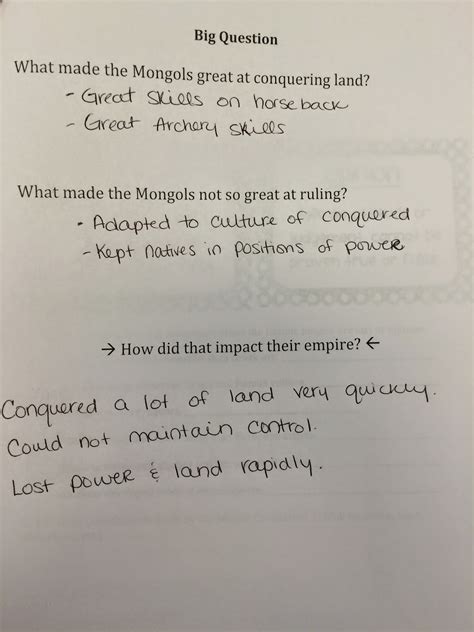 Big Question
What made the Mongols great at conquering land?
- Great skills on horseback
- Great Archery skills
What made the Mongols not so great at ruling?
- Adapted to culture of conquered
- Kept natives in positions of power
→ How did that impact their empire? ←
Conquered a lot of land very quickly.
Could not maintain control.
Lost power & land rapidly.